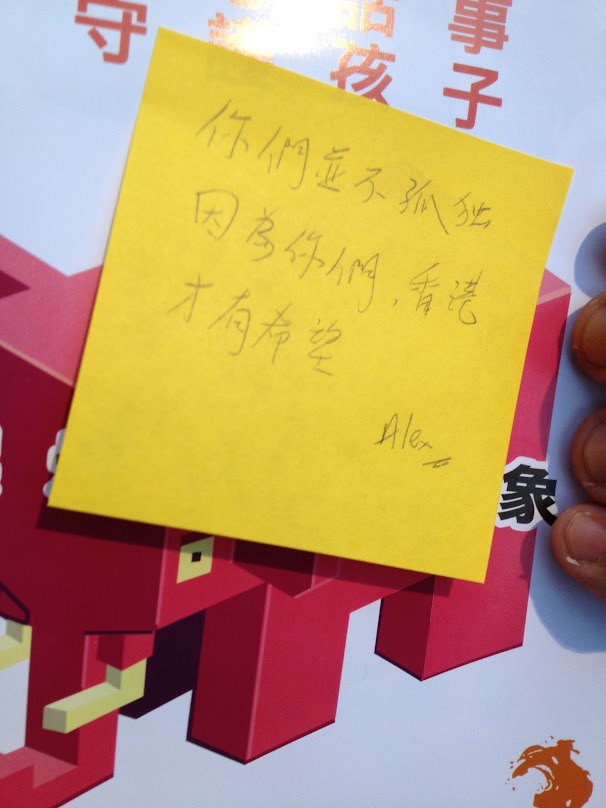 事子
孩
守
你們並不孤独
因為你們，香港
才有希望
Alex
象